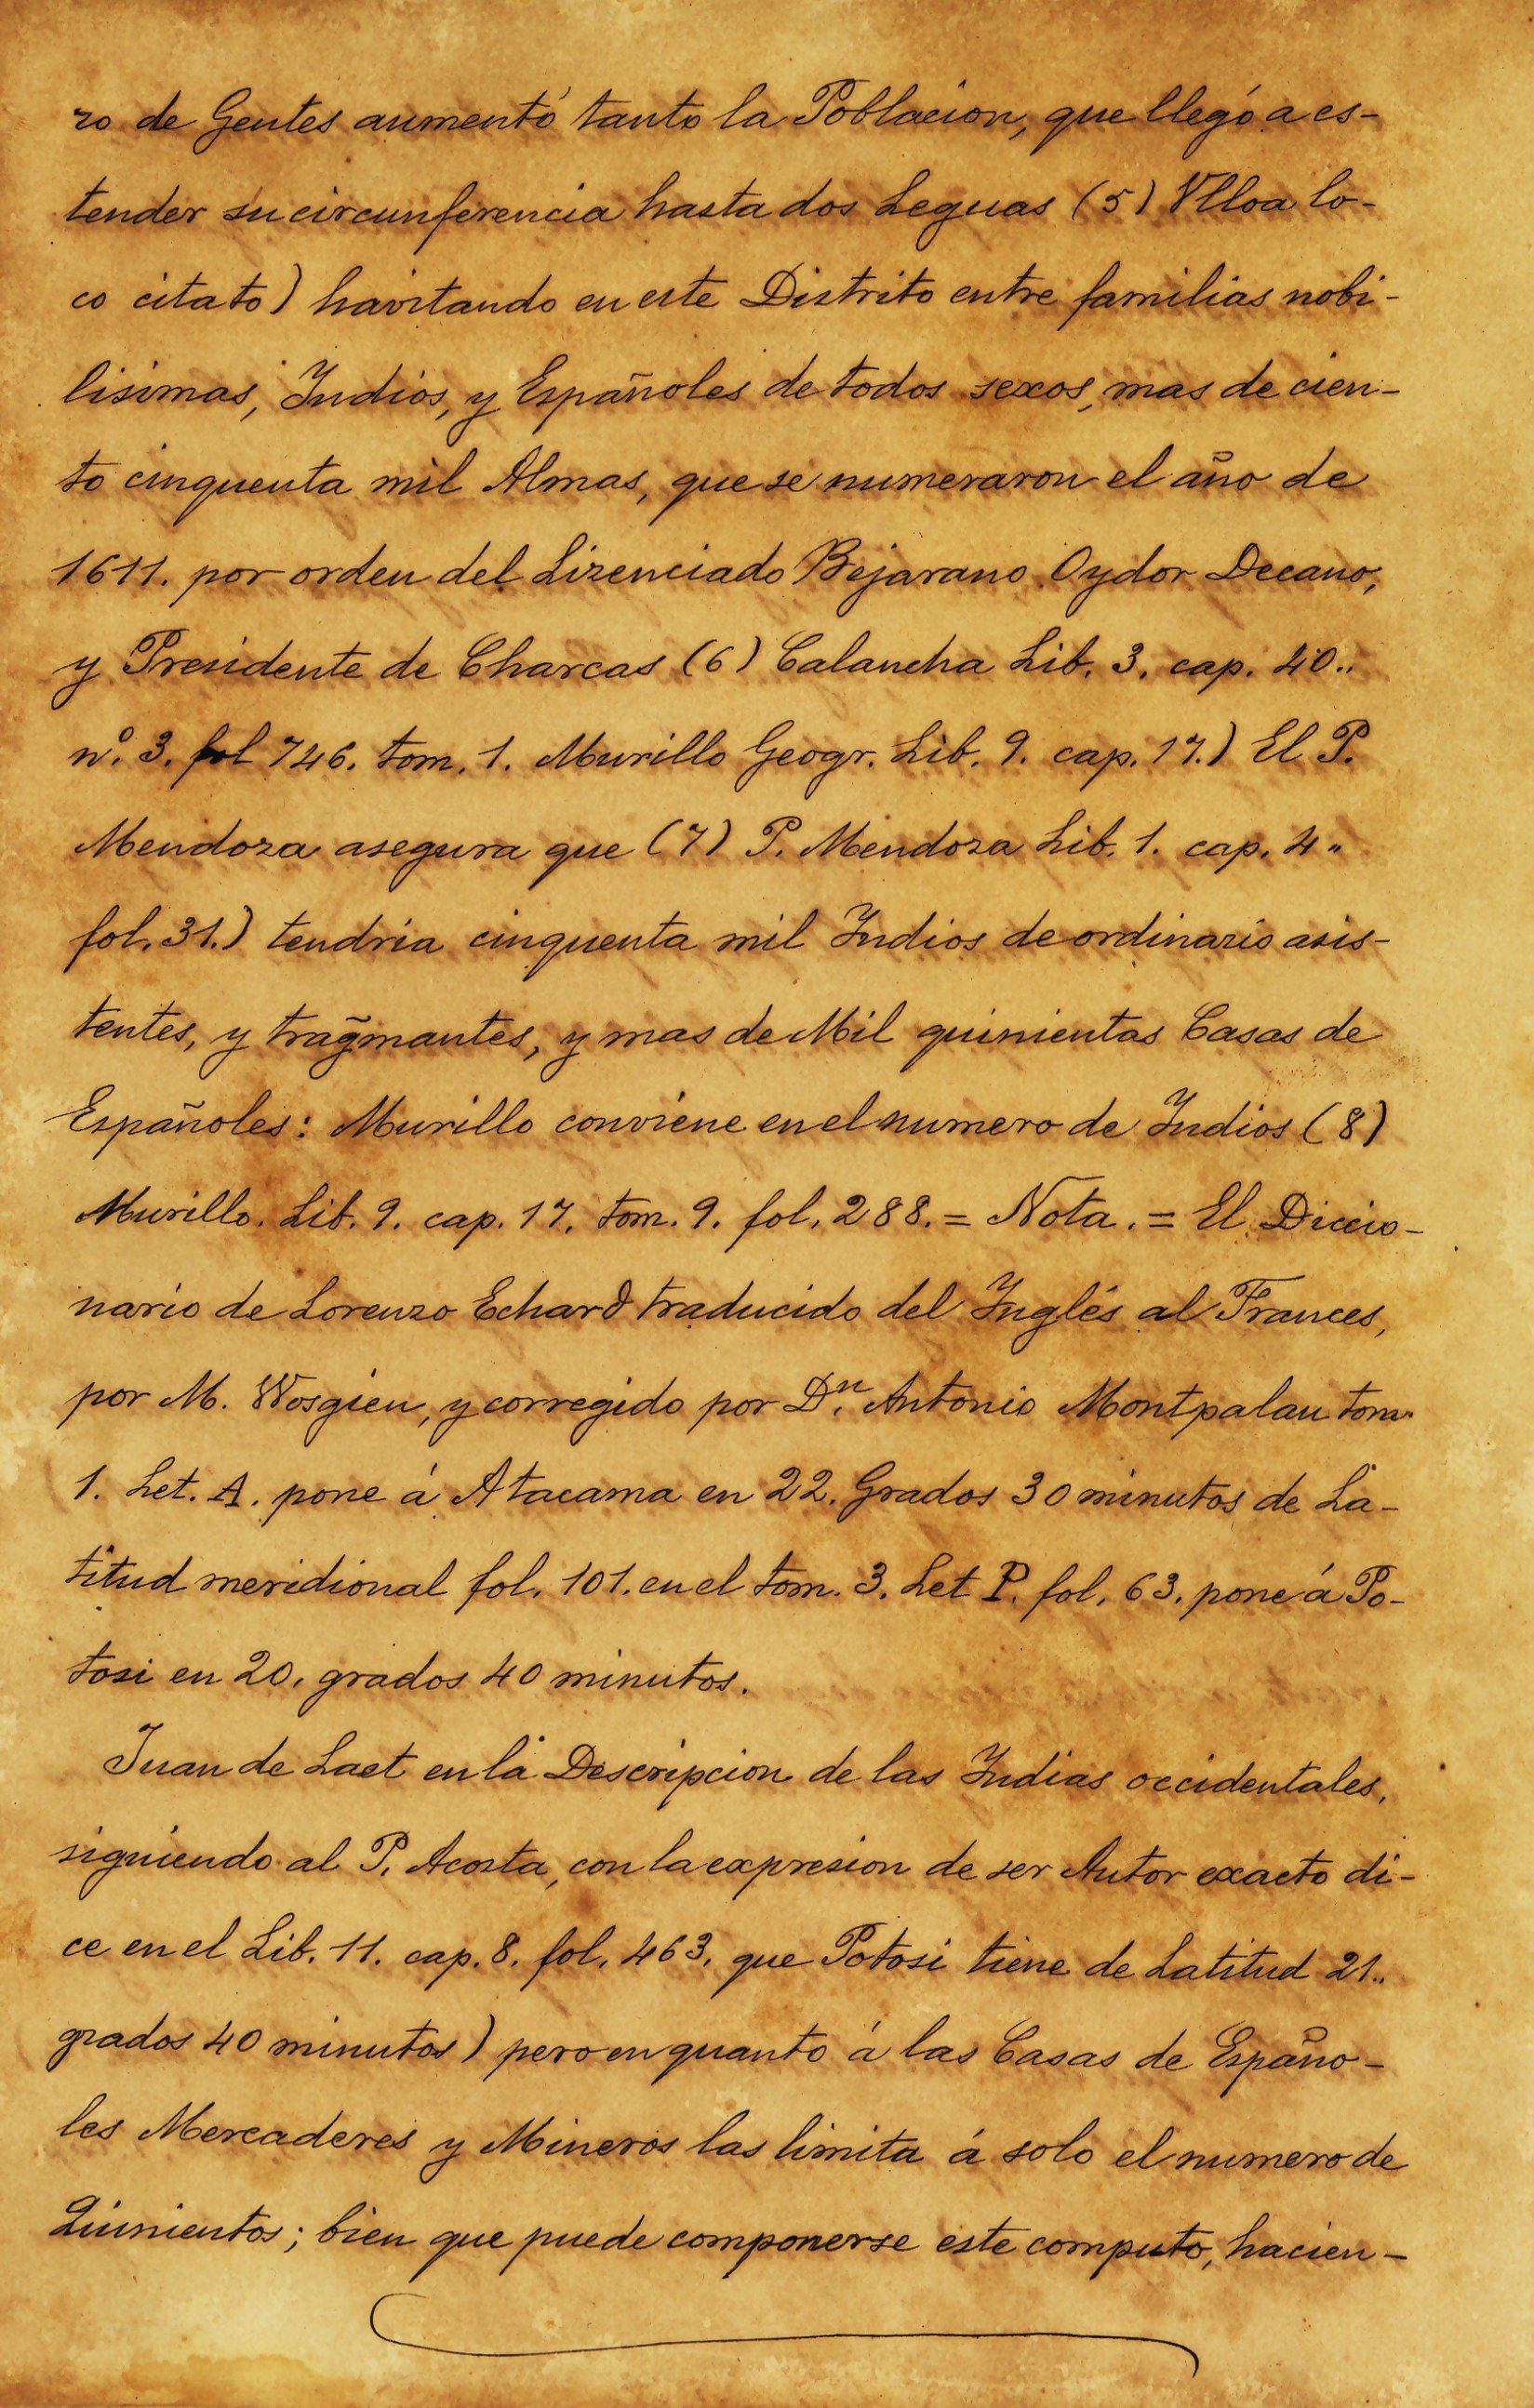 ro de Gentes aumentó tanto la Poblacion, que llegó a es-
tender su circunferencia hasta dos Leguas (5) Vlloa lo-
co citato) havitando en este Distrito entre familias nobi-
lisimas, Indios, y Españoles de todos sexos, mas de cien-
to cinquenta mil Almas, que se numeraron el año de
1611. por orden del Lizenciado Bejarano Oydor Decano,
y Presidente de Charcas (6) Calancha Lib. 3. cap. 40..
nº. 3. fol 746. tom. 1. Murillo Geogr. Lib. 9. cap. 17.) El P.
Mendoza asegura que (7) P. Mendoza Lib. 1. cap. 4..
fol. 31.) tendria cinquenta mil Indios de ordinario asis-
tentes, y trağmantes, y mas de Mil quinientas Casas de
Españoles: Murillo conviene en el numero de Indios (8)
Murillo. Lib. 9. cap. 17. tom. 9. fol. 288. = Nota. = El Diccio-
nario de Lorenzo Echard traducido del Inglés al Frances,
por M. Wosgien, y corregido por Dn. Antonio Montpalau tom.
1. Let. A. pone á Atacama en 22. Grados 30 minutos de La-
titud meridional fol. 101. en el tom. 3. Let P. fol. 63. pone á Po-
tosi en 20. grados 40 minutos.
Juan de Laet en la Descripcion de las Indias occidentales,
siguiendo al P. Acosta, con la expresion de ser Autor exacto di-
ce en el Lib. 11. cap. 8. fol. 463. que Potosi tiene de Latitud 21..
grados 40 minutos) pero en quanto á las Casas de Españo-
les Mercaderes y Mineros las limita á solo el numero de
Quinientos; bien que puede componerse este computo, hacien-